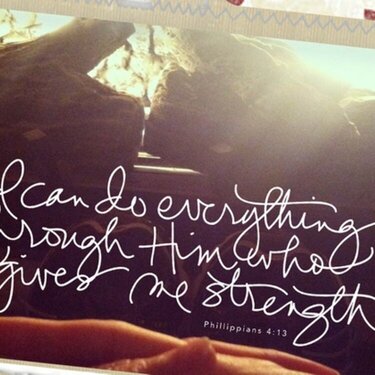 I can do everything
hrough Him who
gives me strength
Phillippians 4:13